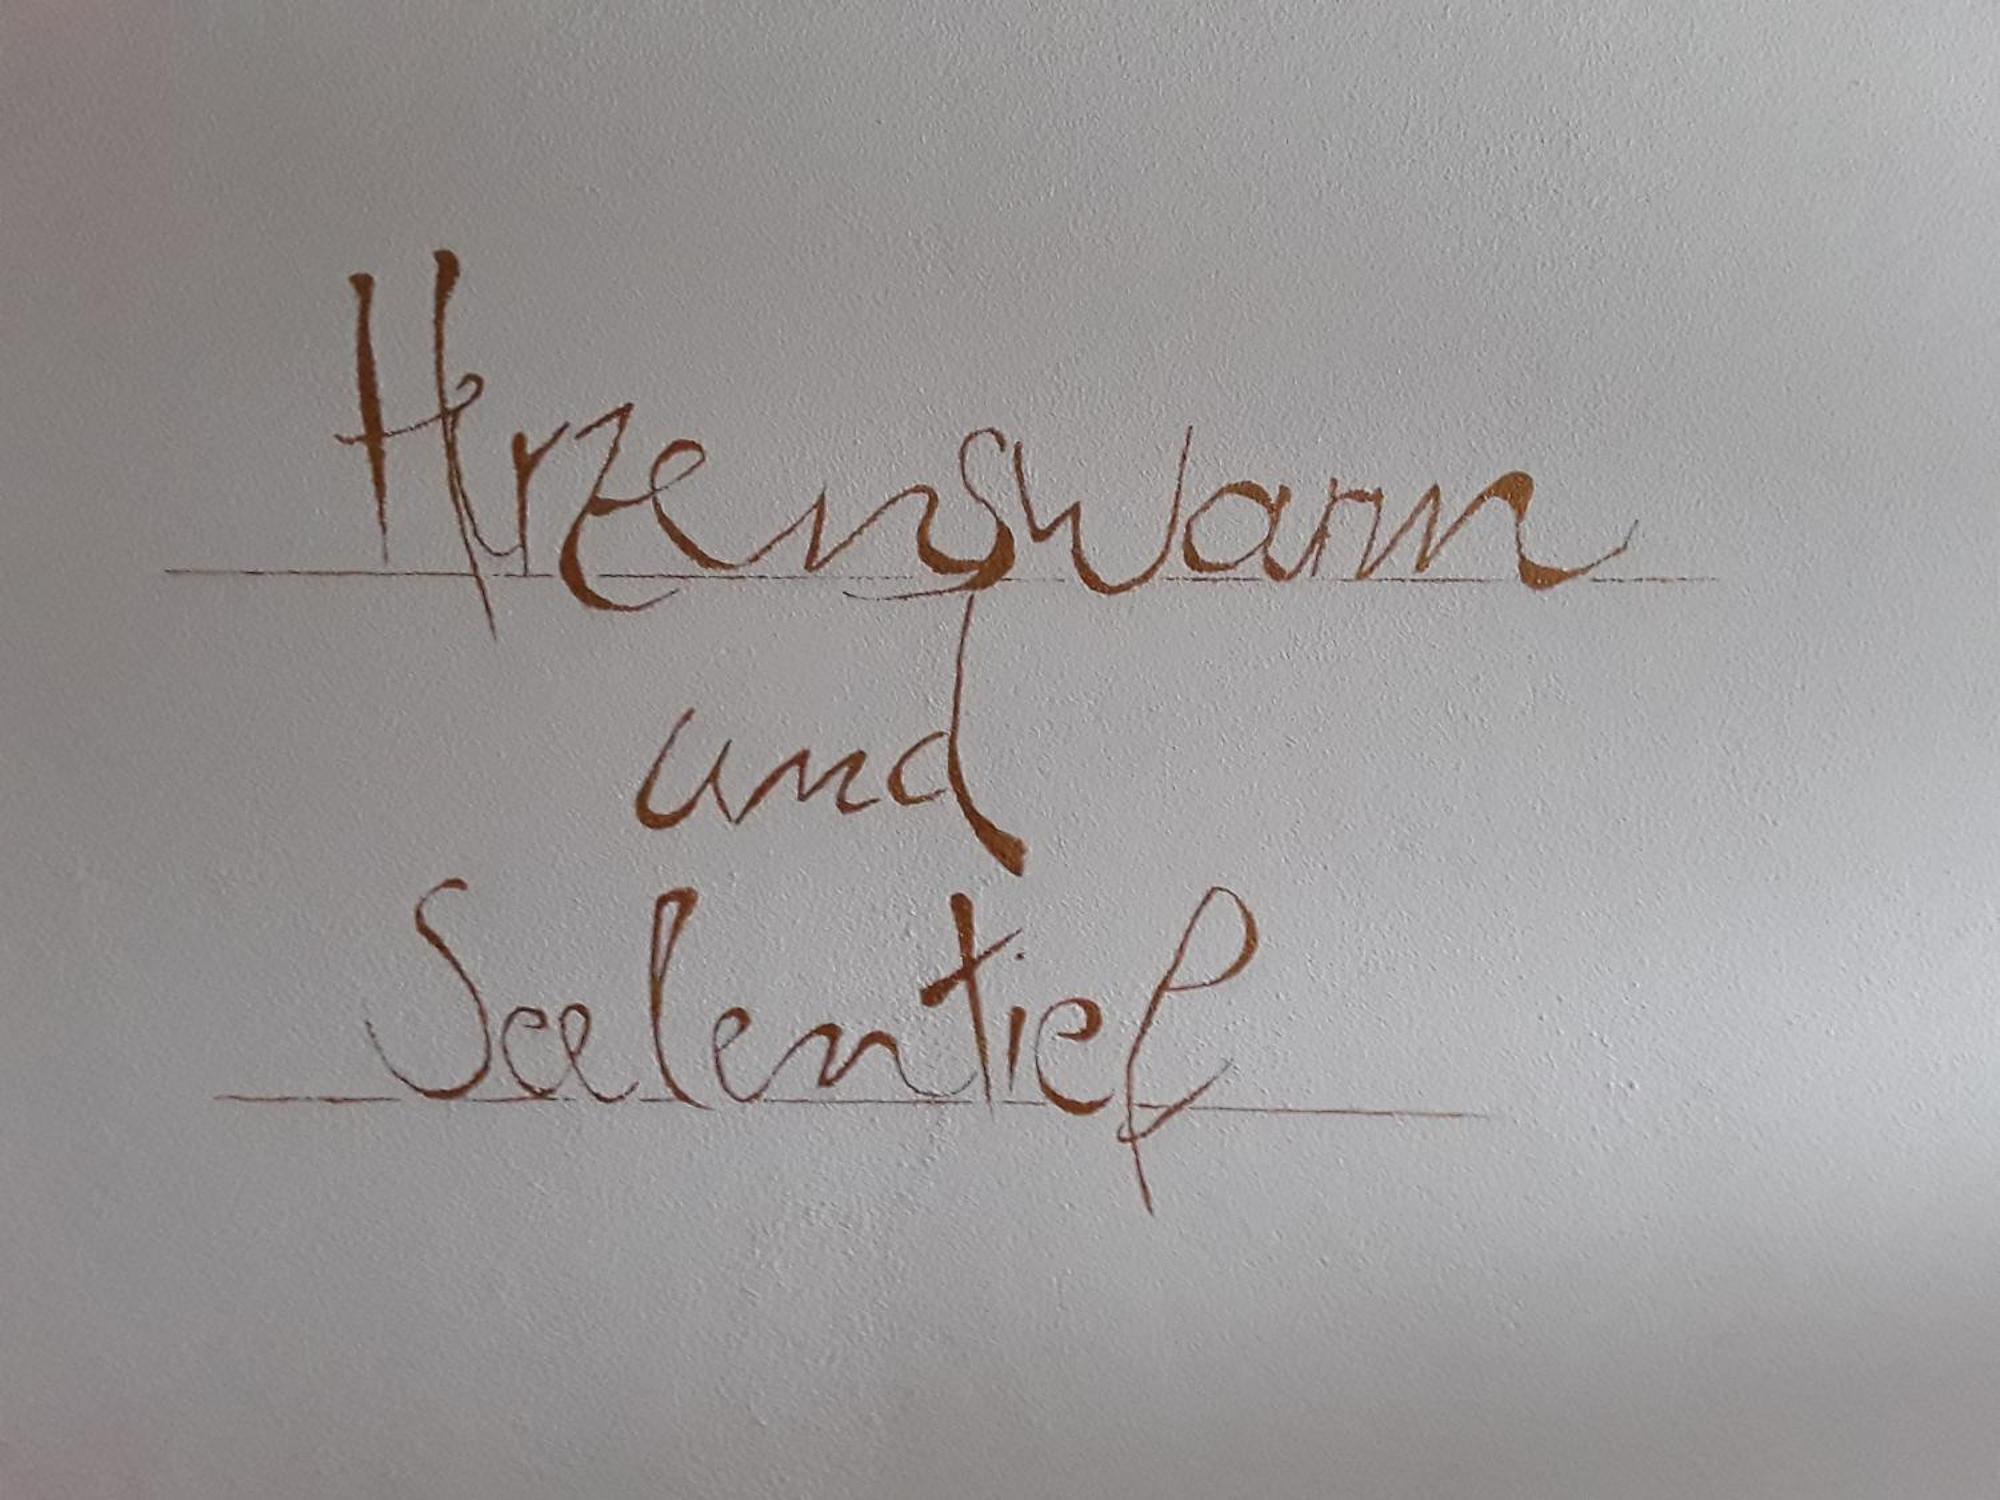 Herzenswarm
und
Seelentief